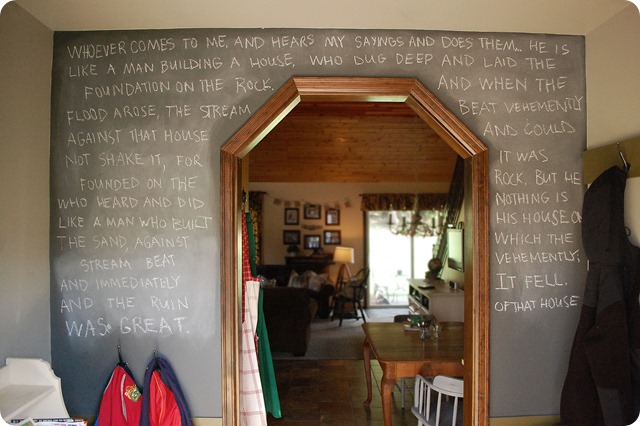 WHOEVER COMES TO ME, AND HEARS MY SAYINGS AND DOES THEM... HE IS
LIKE A MAN BUILDING A HOUSE, WHO DUG DEEP AND LAID THE
FOUNDATION ON THE ROCK. AND WHEN THE
FLOOD AROSE, THE STREAM BEAT VEHEMENTLY
AGAINST THAT HOUSE AND COULD
NOT SHAKE IT, FOR IT WAS
FOUNDED ON THE ROCK. BUT HE
WHO HEARD AND DID NOTHING IS
LIKE A MAN WHO BUILT HIS HOUSE ON
THE SAND, AGAINST WHICH THE
STREAM BEAT VEHEMENTLY;
AND IMMEDIATELY IT FELL.
AND THE RUIN OF THAT HOUSE
WAS GREAT.